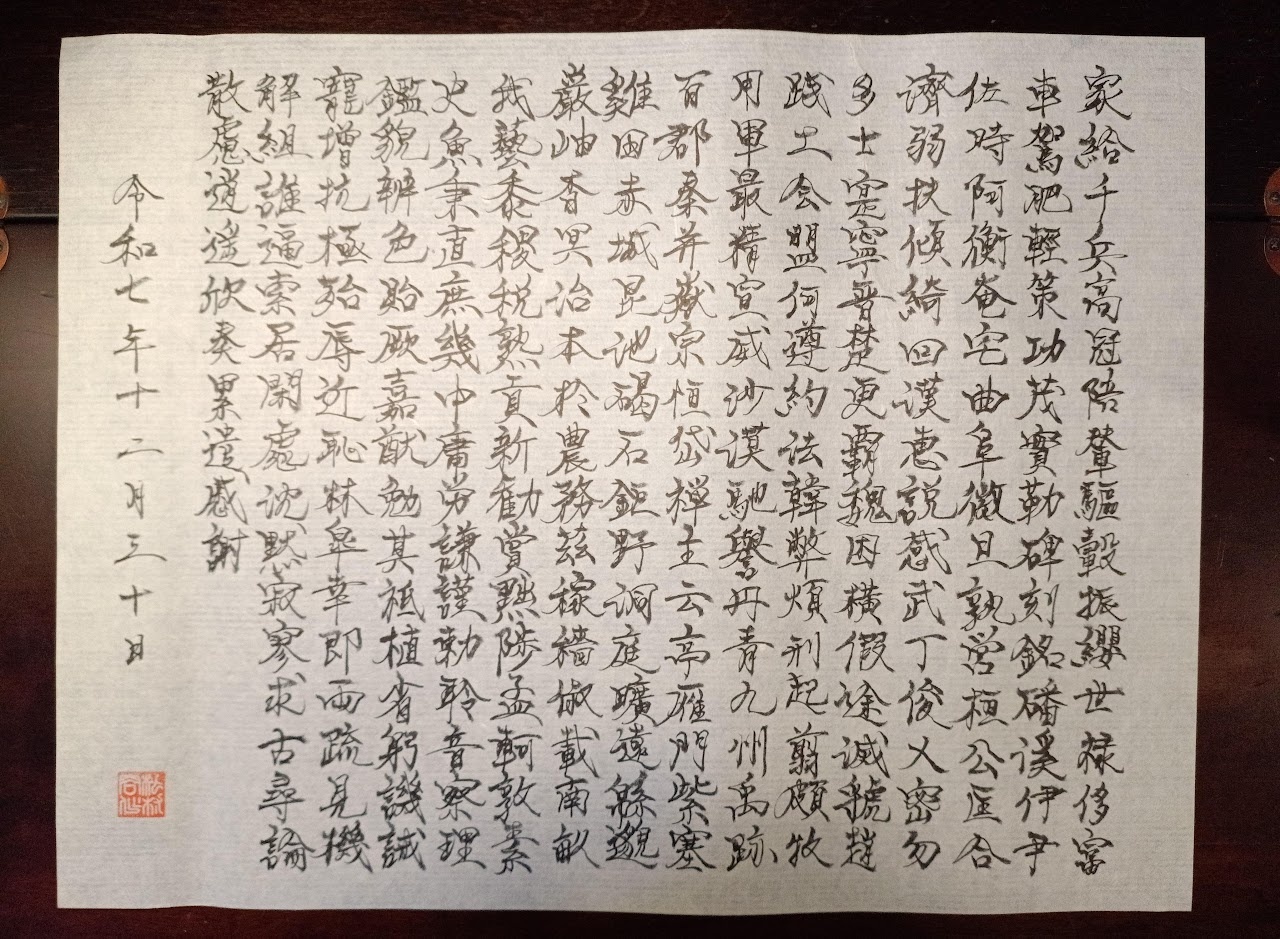 家給千兵高冠陪輦驅轂振纓世祿侈富
車駕肥輕策功茂實勒碑刻銘磻溪伊尹
佐時阿衡奄宅曲阜微旦孰営桓公匡合
濟弱扶傾綺回漢恵説感武丁俊乂密勿
多士寔寧晋楚更覇魏困横假途滅虢趙
踐土会盟何遵約法韓弊煩刑起翦頗牧
用軍最精宣威沙漠馳譽丹青九州禹跡
百郡秦并嶽宗恒岱禅主云亭雁門紫塞
雞田赤城昆池碣石鉅野洞庭曠遠緜邈
巌岫杳冥治本於農務茲稼穡俶載南畝
我藝黍稷税熟貢新勧賞黜陟孟軻敦素
史魚秉直庶幾中庸労謙謹勅聆音察理
鑑貌辨色貽厥嘉猷勉其祗植省躬譏誡
寵増抗極殆辱近恥林皋幸即両疏見機
解組誰逼索居閑處沈默寂寥求古尋論
散慮逍遥欣奏累遣慼謝
令和七年十二月三十日